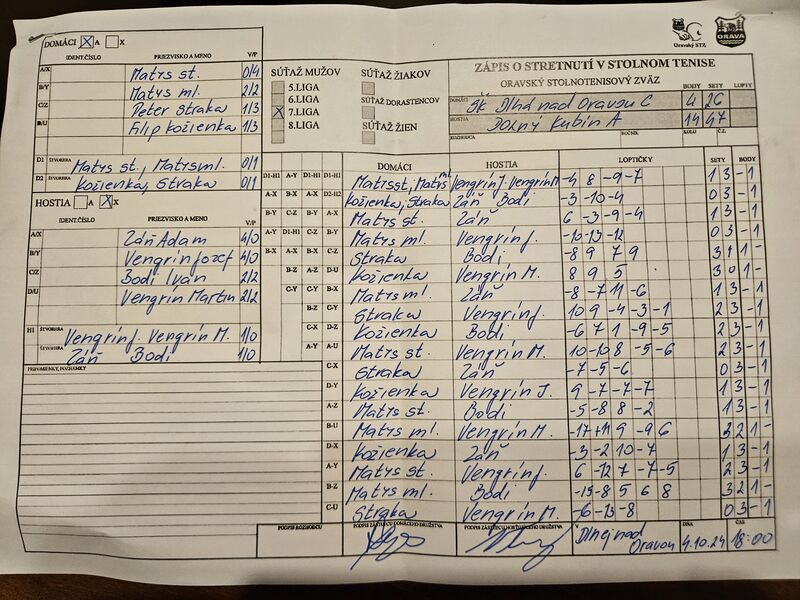 DOMÁCI X A X
IDENT.ČÍSLO PRIEZVISKO A MENO V/P
A/X Matys st. 0/4
B/Y Matys ml. 2/2
C/Z Peter Straka 1/3
B/U Filip Kožienka 1/3
D1 ŠTVORHRA Matys st., Matys ml. 0/1
D2 ŠTVORHRA Kožienka, Straka 0/1
HOSTIA A X X
IDENT.ČÍSLO PRIEZVISKO A MENO V/P
A/X Záň Adam 4/0
B/Y Vengrín Jozef 4/0
C/Z Bodi Iván 2/2
D/U Vengrín Martin 2/2
H1 ŠTVORHRA Vengrín J. Vengrín M. 1/0
ŠTVORHRA Záň Bodi 1/0
PRIPOMIENKY, POZNÁMKY
SÚŤAŽ MUŽOV
5.LIGA
6.LIGA
X 7.LIGA
8.LIGA
SÚŤAŽ ŽIAKOV
SÚŤAŽ DORASTENCOV
SÚŤAŽ ŽIEN
Oravský STZ
ORAVA
ZÁPIS O STRETNUTÍ V STOLNOM TENISE
ORAVSKÝ STOLNOTENISOVÝ ZVÄZ
BODY SETY LOPTY
DOMÁCI ŠK Dlhá nad Oravou C 4 26
HOSTIA Dolný Kubín A 14 47
ROZHODCA ROČNÍK KOLO Č.Z.
DOMÁCI HOSTIA LOPTIČKY SETY BODY
D1-H1 A-Y D1-H1 D1-H1 Matys st, Matys ml Vengrín J. Vengrín M. -4 8 -9 -7 1 3 - 1
A-X B-X A-X D2-H2 Kožienka, Straka Záň Bodi -3 -10 -4 0 3 - 1
B-Y C-Z B-Y A-X Matys st. Záň 6 -3 -9 -4 1 3 - 1
A-Y D1-H1 C-Z B-Y Matys ml. Vengrín J. -10 -13 -12 0 3 - 1
B-X A-X B-X C-Z Straka Bodi -8 9 7 9 3 1 1 -
B-Z A-Z D-U Kožienka Vengrín M. 8 9 5 3 0 1 -
C-Y C-Y B-X Matys ml. Záň -8 -7 11 -6 1 3 - 1
B-Z C-Y Straka Vengrín J. 10 9 -4 -3 -1 2 3 - 1
C-X D-Z Kožienka Bodi -6 7 1 -9 -5 2 3 - 1
A-Y A-U Matys st. Vengrín M. 10 -10 8 -5 -6 2 3 - 1
C-X Straka Záň -7 -5 -6 0 3 - 1
D-Y Kožienka Vengrín J. 9 -7 -7 -7 1 3 - 1
A-Z Matys st. Bodi -5 -8 8 -2 1 3 - 1
B-U Matys ml. Vengrín M. -17 +11 9 -9 6 3 2 1 -
D-X Kožienka Záň -3 -2 10 -7 1 3 - 1
A-Y Matys st. Vengrín J. 6 -12 7 -7 -5 2 3 - 1
B-Z Matys ml. Bodi -15 -8 5 6 8 3 2 1 -
C-U Straka Vengrín M. -6 -13 -8 0 3 - 1
PODPIS ROZHODCU PODPIS ZÁSTUPCU DOMÁCEHO DRUŽSTVA PODPIS ZÁSTUPCU HOSŤUJÚCEHO DRUŽSTVA V Dlhej nad Oravou DŇA 4.10.24 ČAS 18:00